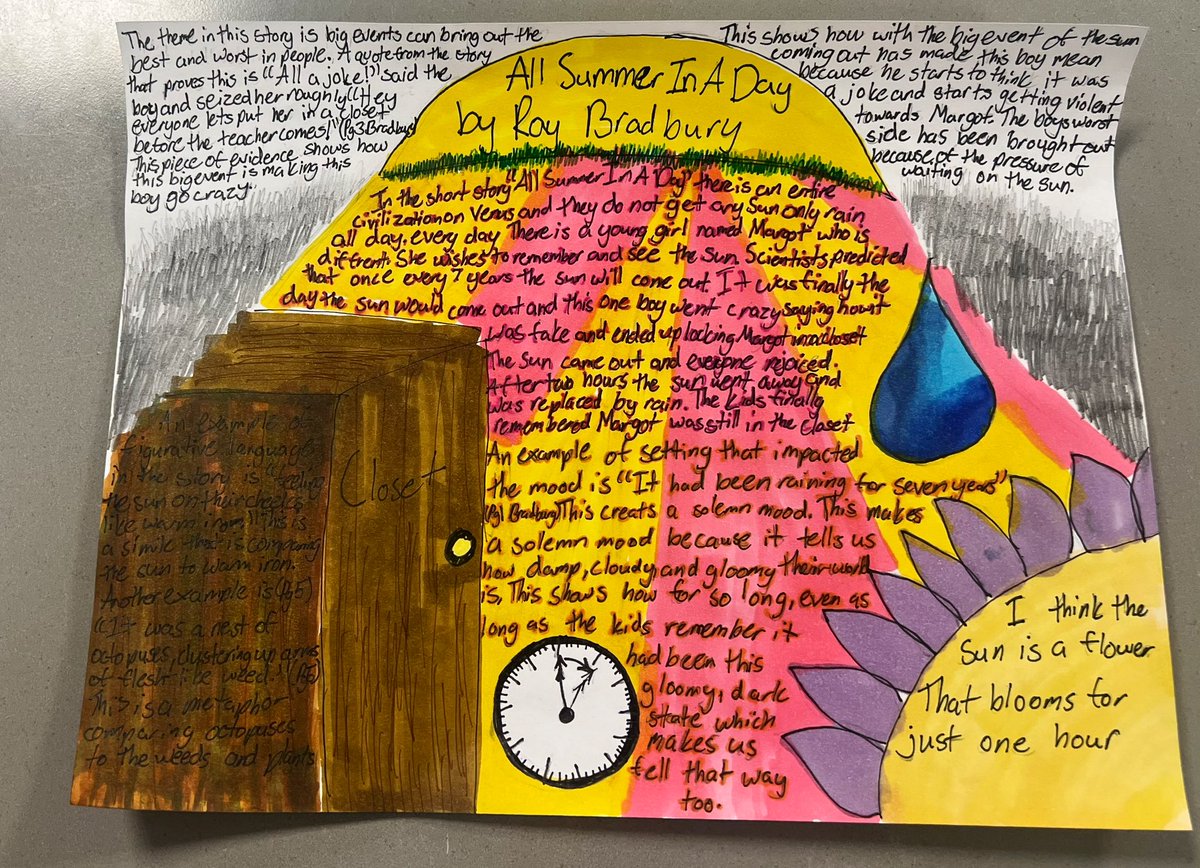 The theme in this story is big events can bring out the
best and worst in people. A quote from the story
that proves this is "All a joke!" said the
boy and seized her roughly "Hey
everyone lets put her in a closet
before the teacher comes!" (Pg3 Bradbury)
This piece of evidence shows how
this big event is making this
boy go crazy.
This shows how with the big event of the sun
coming out has made this boy mean
because he starts to think it was
a joke and starts getting violent
towards Margot. The boys worst
side has been brought out
because of the pressure of
waiting on the sun.
All Summer In A Day
by Ray Bradbury
In the short story "All Summer In A Day" there is an entire
civilization on Venus and they do not get any sun only rain
all day, every day. There is a young girl named Margot who is
different. She wishes to remember and see the sun. Scientists predicted
that once every 7 years the sun will come out. It was finally the
day the sun would come out and this one boy went crazy saying how it
was fake and ended up locking Margot in a closet
The sun came out and everyone rejoiced.
After two hours the sun went away and
was replaced by rain. The kids finally
remembered Margot was still in the closet
An example of setting that impacted
the mood is "It had been raining for seven years"
(Pg1 Bradbury) This creats a solemn mood. This makes
a solemn mood because it tells us
how damp, cloudy, and gloomy their world
is, This shows how for so long, even as
long as the kids remember it
had been this
gloomy, dark
state which
makes us
fell that way
too.
An example of
figurative language
in the story is "feeling
the sun on their cheeks
like warm iron" This is
a simile that is comparing
the sun to warm iron.
Another example is (Pg5)
"It was a nest of
octopuses, clustering up arms
of flesh like weed." (Pg5)
This is a metaphor
comparing octopuses
to the weeds and plants
Closet
I think the
Sun is a flower
That blooms for
just one hour